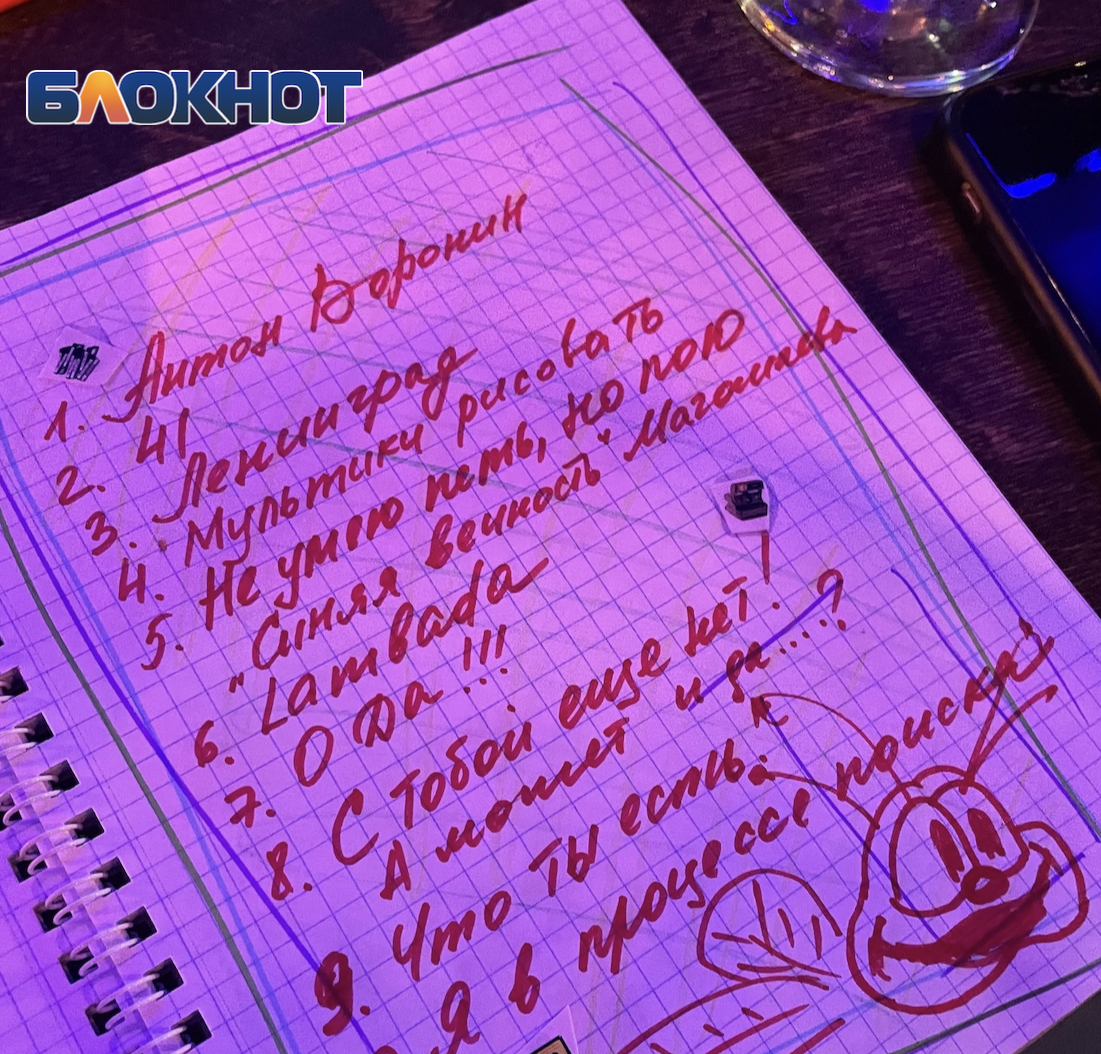 БЛОКНОТ
1. Антон Воронин
2. 41
3. Ленинград
4. Мультики рисовать
5. Не умею петь, но пою
"Синяя вечность" Магомаева
6. Lambada
7. О да!!!
8. С тобой еще нет!
А может и да....?
9. Что ты есть.
Я в процессе поиска